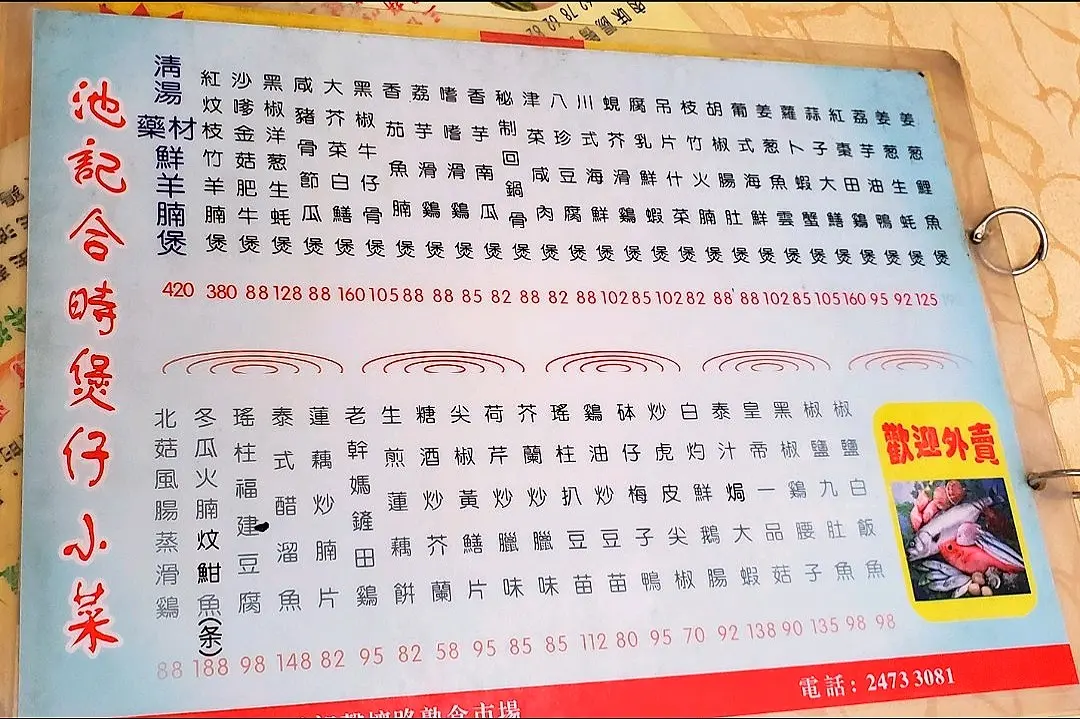 池記合時煲仔小菜
清湯藥材鮮羊腩煲
紅炆枝竹羊腩煲
沙嗲金菇肥牛煲
黑椒洋葱生蚝煲
咸豬骨節瓜煲
大芥菜白鱔煲
黑椒牛仔骨煲
香茄魚腩煲
荔芋滑鷄煲
嗜嗜滑鷄煲
香芋南瓜煲
秘制回鍋骨煲
津菜咸肉煲
八珍豆腐煲
川式海鮮煲
蜆芥滑鷄煲
腐乳鮮蝦煲
吊片什菜煲
枝竹火腩煲
胡椒腸肚煲
葡式海鮮煲
姜葱魚雲煲
蘿卜蝦蟹煲
蒜子大鱔煲
紅棗田鷄煲
荔芋油鴨煲
姜葱生蚝煲
姜葱鯉魚煲
420 380 88 128 88 160 105 88 88 85 82 88 82 88 102 85 102 82 88 88 102 85 105 160 95 92 125
北菇風腸蒸滑鷄
冬瓜火腩炆魽魚(条)
瑤柱福建豆腐
泰式醋溜魚
蓮藕炒腩片
老幹媽鏟田鷄
生煎蓮藕餅
糖酒炒芥蘭
尖椒黃鱔片
荷芹炒臘味
芥蘭炒臘味
瑤柱扒豆苗
鷄油炒豆苗
砵仔梅子鴨
炒虎皮尖椒
白灼鮮鵝腸
泰汁焗大蝦
皇帝一品菇
黑椒鷄腰子
椒鹽九肚魚
椒鹽白飯魚
88 188 98 148 82 95 82 58 95 85 85 112 80 95 70 92 138 90 135 98 98
歡迎外賣
路熟食市場
電話：2473 3081